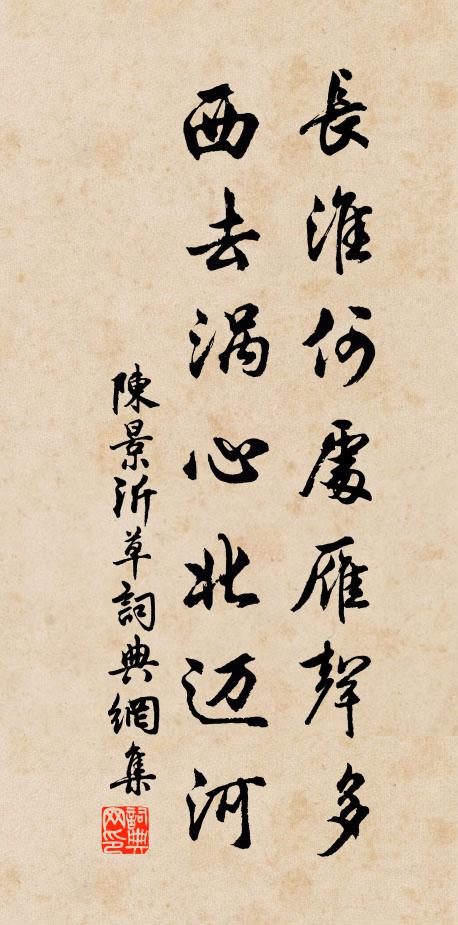 長淮何處雁聲多
西去涡心北迈河
陳景沂草詞典網集
詞典
网印